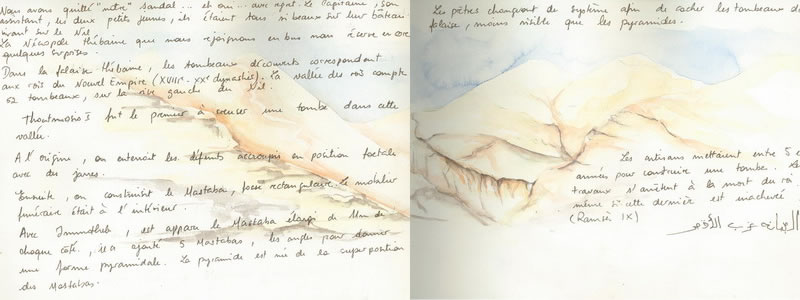 Nous avons quitté "notre" sandal... et oui... avec regret. Le Capitaine, son
assistant, les deux petits jeunes, ils étaient tous si beaux sur leur bateau
vivant sur le Nil.
La Nécopole thébaine que nous rejoignons en bus nous réserve encore
quelques surprises.
Dans la falaise thébaine, les tombeaux découverts correspondent
aux rois du Nouvel Empire (XVIIIe - XXe dynastie). La vallée des rois compte
62 tombeaux, sur la rive gauche du Nil.
Thoutmosis I fut le premier à creuser une tombe dans cette
vallée.
A l'origine, on enterrait les défunts accroupis en position foetale
avec des jarres.
Ensuite, on construisit le Mastaba, fosse rectangulaire. Le mobilier
funéraire était à l'intérieur.
Avec , est apparu le Mastaba élargi de
chaque côté, ajouté 5 Mastabas, les angles pour donner
une forme pyramidale. La pyramide est née de la superposition
des Mastabas.
Les prêtres changèrent de système afin de cacher les tombeaux dans
falaise, moins visible que les pyramides.
Les artisans mettaient entre 5 e
années pour construire une tombe. Les
travaux s'arrêtent à la mort du roi
même si cette dernière est inachevée
(Ramsès IX)